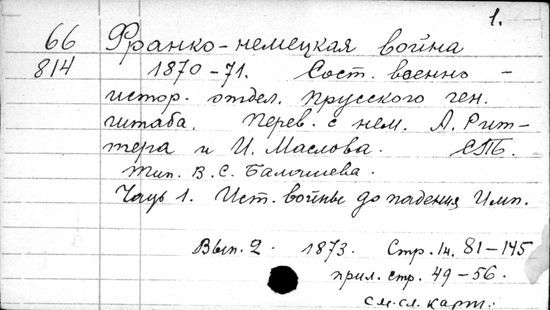 1.
66 Франко-немецкая война
814 1870-71. Сост. военно-
истор. отдел. прусского ген.
штаба. Перев. с нем. А. Рит-
тера и И. Маслова. СПб.
Тип. В. С. Балашева.
Часть 1. Ист. войны до падения Имп.
Вып. 2. 1873. Стр. 81-145
прил. стр. 49-56.
см. сл. карт.